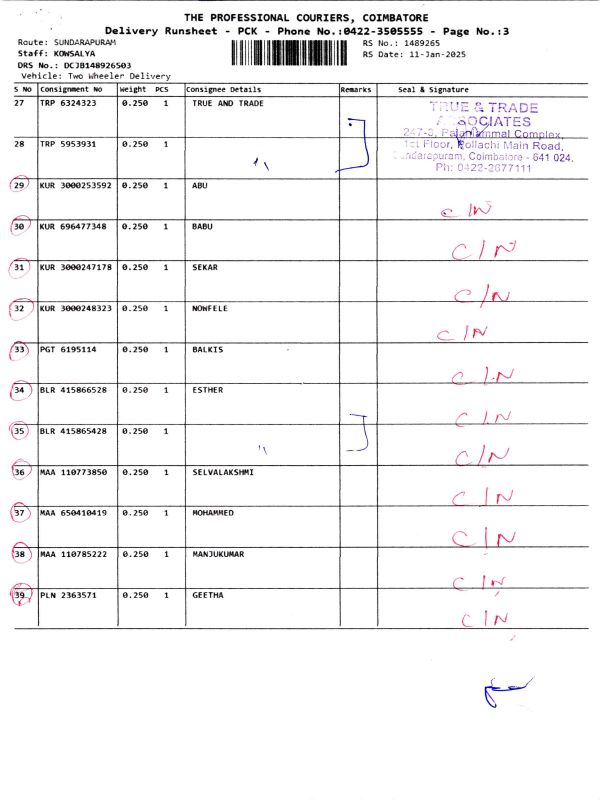 THE PROFESSIONAL COURIERS, COIMBATORE
Delivery Runsheet - PCK - Phone No.:0422-3505555 - Page No.:3
Route: SUNDARAPURAM RS No.: 1489265
Staff: KOWSALYA RS Date: 11-Jan-2025
DRS No.: DCJB148926503
Vehicle: Two Wheeler Delivery
S No Consignment No Weight PCS Consignee Details Remarks Seal & Signature
27 TRP 6324323 0.250 1 TRUE AND TRADE
TRUE & TRADE
ASSOCIATES
247-3, Palaniammal Complex,
28 TRP 5953931 0.250 1 1st Floor, Pollachi Main Road,
Sundarapuram, Coimbatore - 641 024.
Ph: 0422-2677111
29 KUR 3000253592 0.250 1 ABU
C/N
30 KUR 696477348 0.250 1 BABU
C/N
31 KUR 3000247178 0.250 1 SEKAR
C/N
32 KUR 3000248323 0.250 1 NOWFELE
C/N
33 PGT 6195114 0.250 1 BALKIS
C/N
34 BLR 415866528 0.250 1 ESTHER
C/N
35 BLR 415865428 0.250 1
C/N
36 MAA 110773850 0.250 1 SELVALAKSHMI
C/N
37 MAA 650410419 0.250 1 MOHAMMED
C/N
38 MAA 110785222 0.250 1 MANJUKUMAR
C/N
39 PLN 2363571 0.250 1 GEETHA
C/N